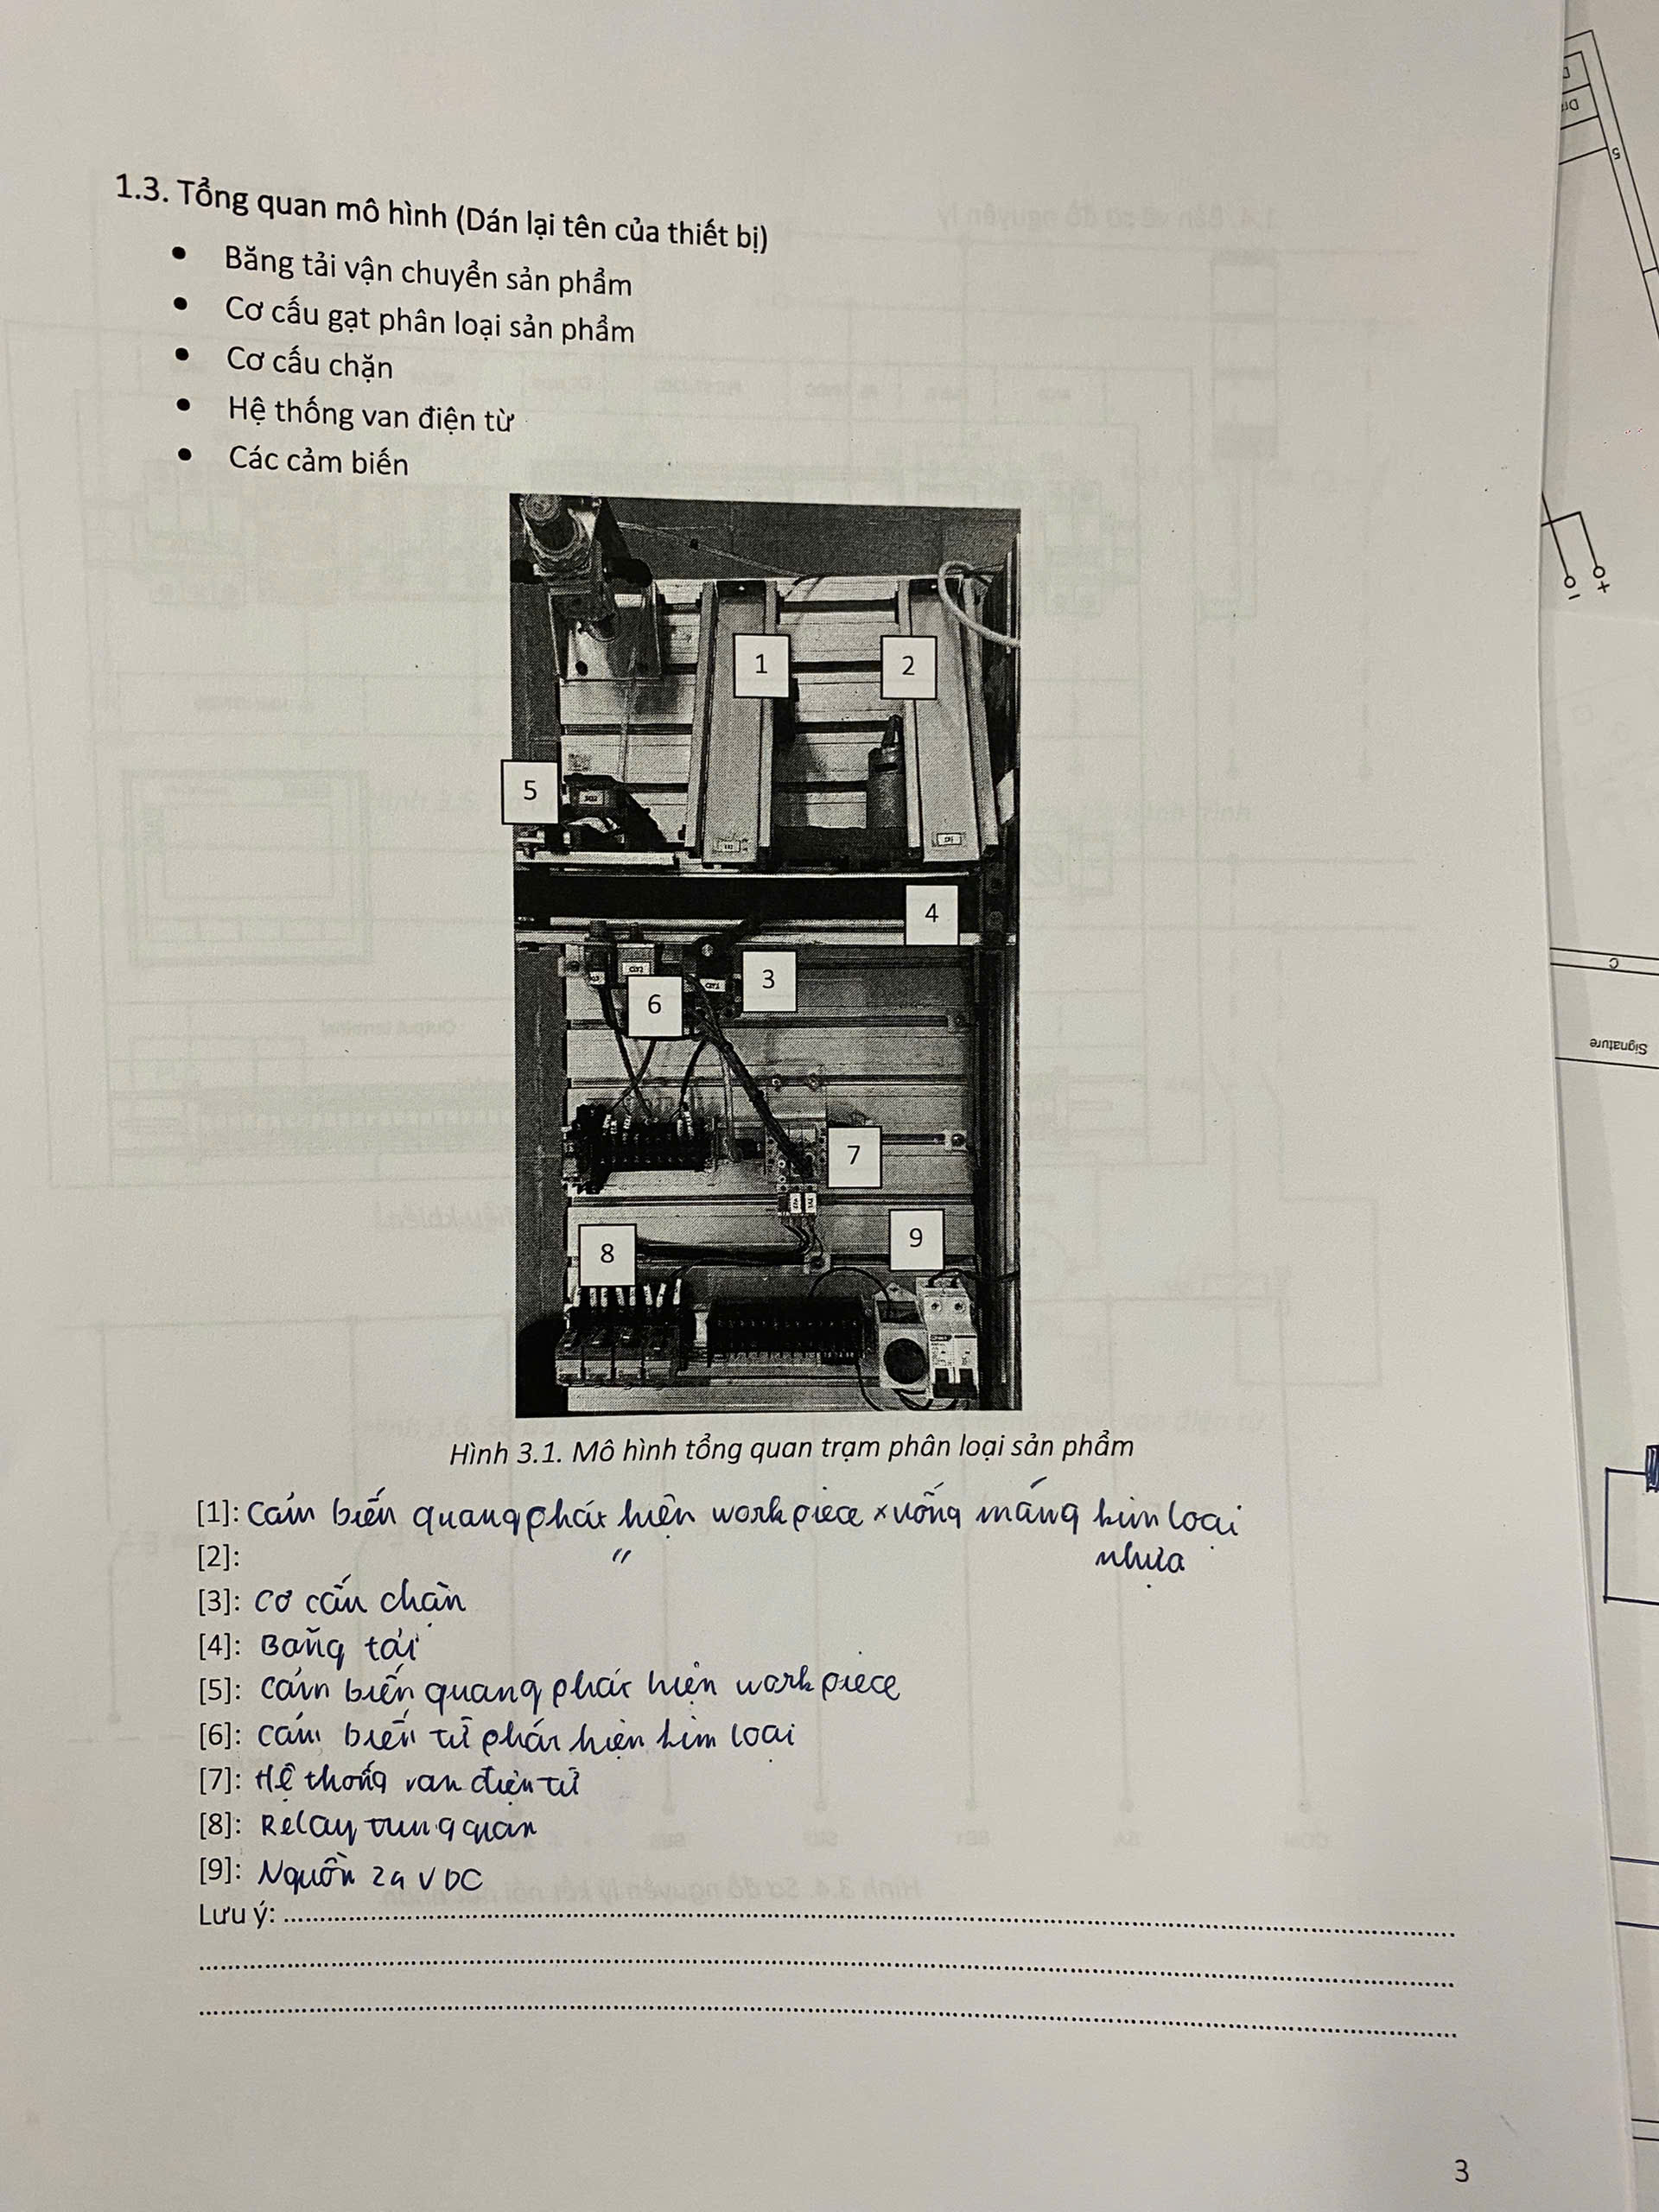 1.3. Tổng quan mô hình (Dán lại tên của thiết bị)
• Băng tải vận chuyển sản phẩm
• Cơ cấu gạt phân loại sản phẩm
• Cơ cấu chặn
• Hệ thống van điện từ
• Các cảm biến
1
2
5
4
3
6
7
8
9
Hình 3.1. Mô hình tổng quan trạm phân loại sản phẩm
[1]: Cảm biến quang phát hiện workpiece xuống máng kim loại
[2]: " nhựa
[3]: Cơ cấu chặn
[4]: Băng tải
[5]: Cảm biến quang phát hiện workpiece
[6]: Cảm biến từ phát hiện kim loại
[7]: Hệ thống van điện từ
[8]: Relay trung gian
[9]: Nguồn 24 VDC
Lưu ý:
3
5
C
Signature
+
-